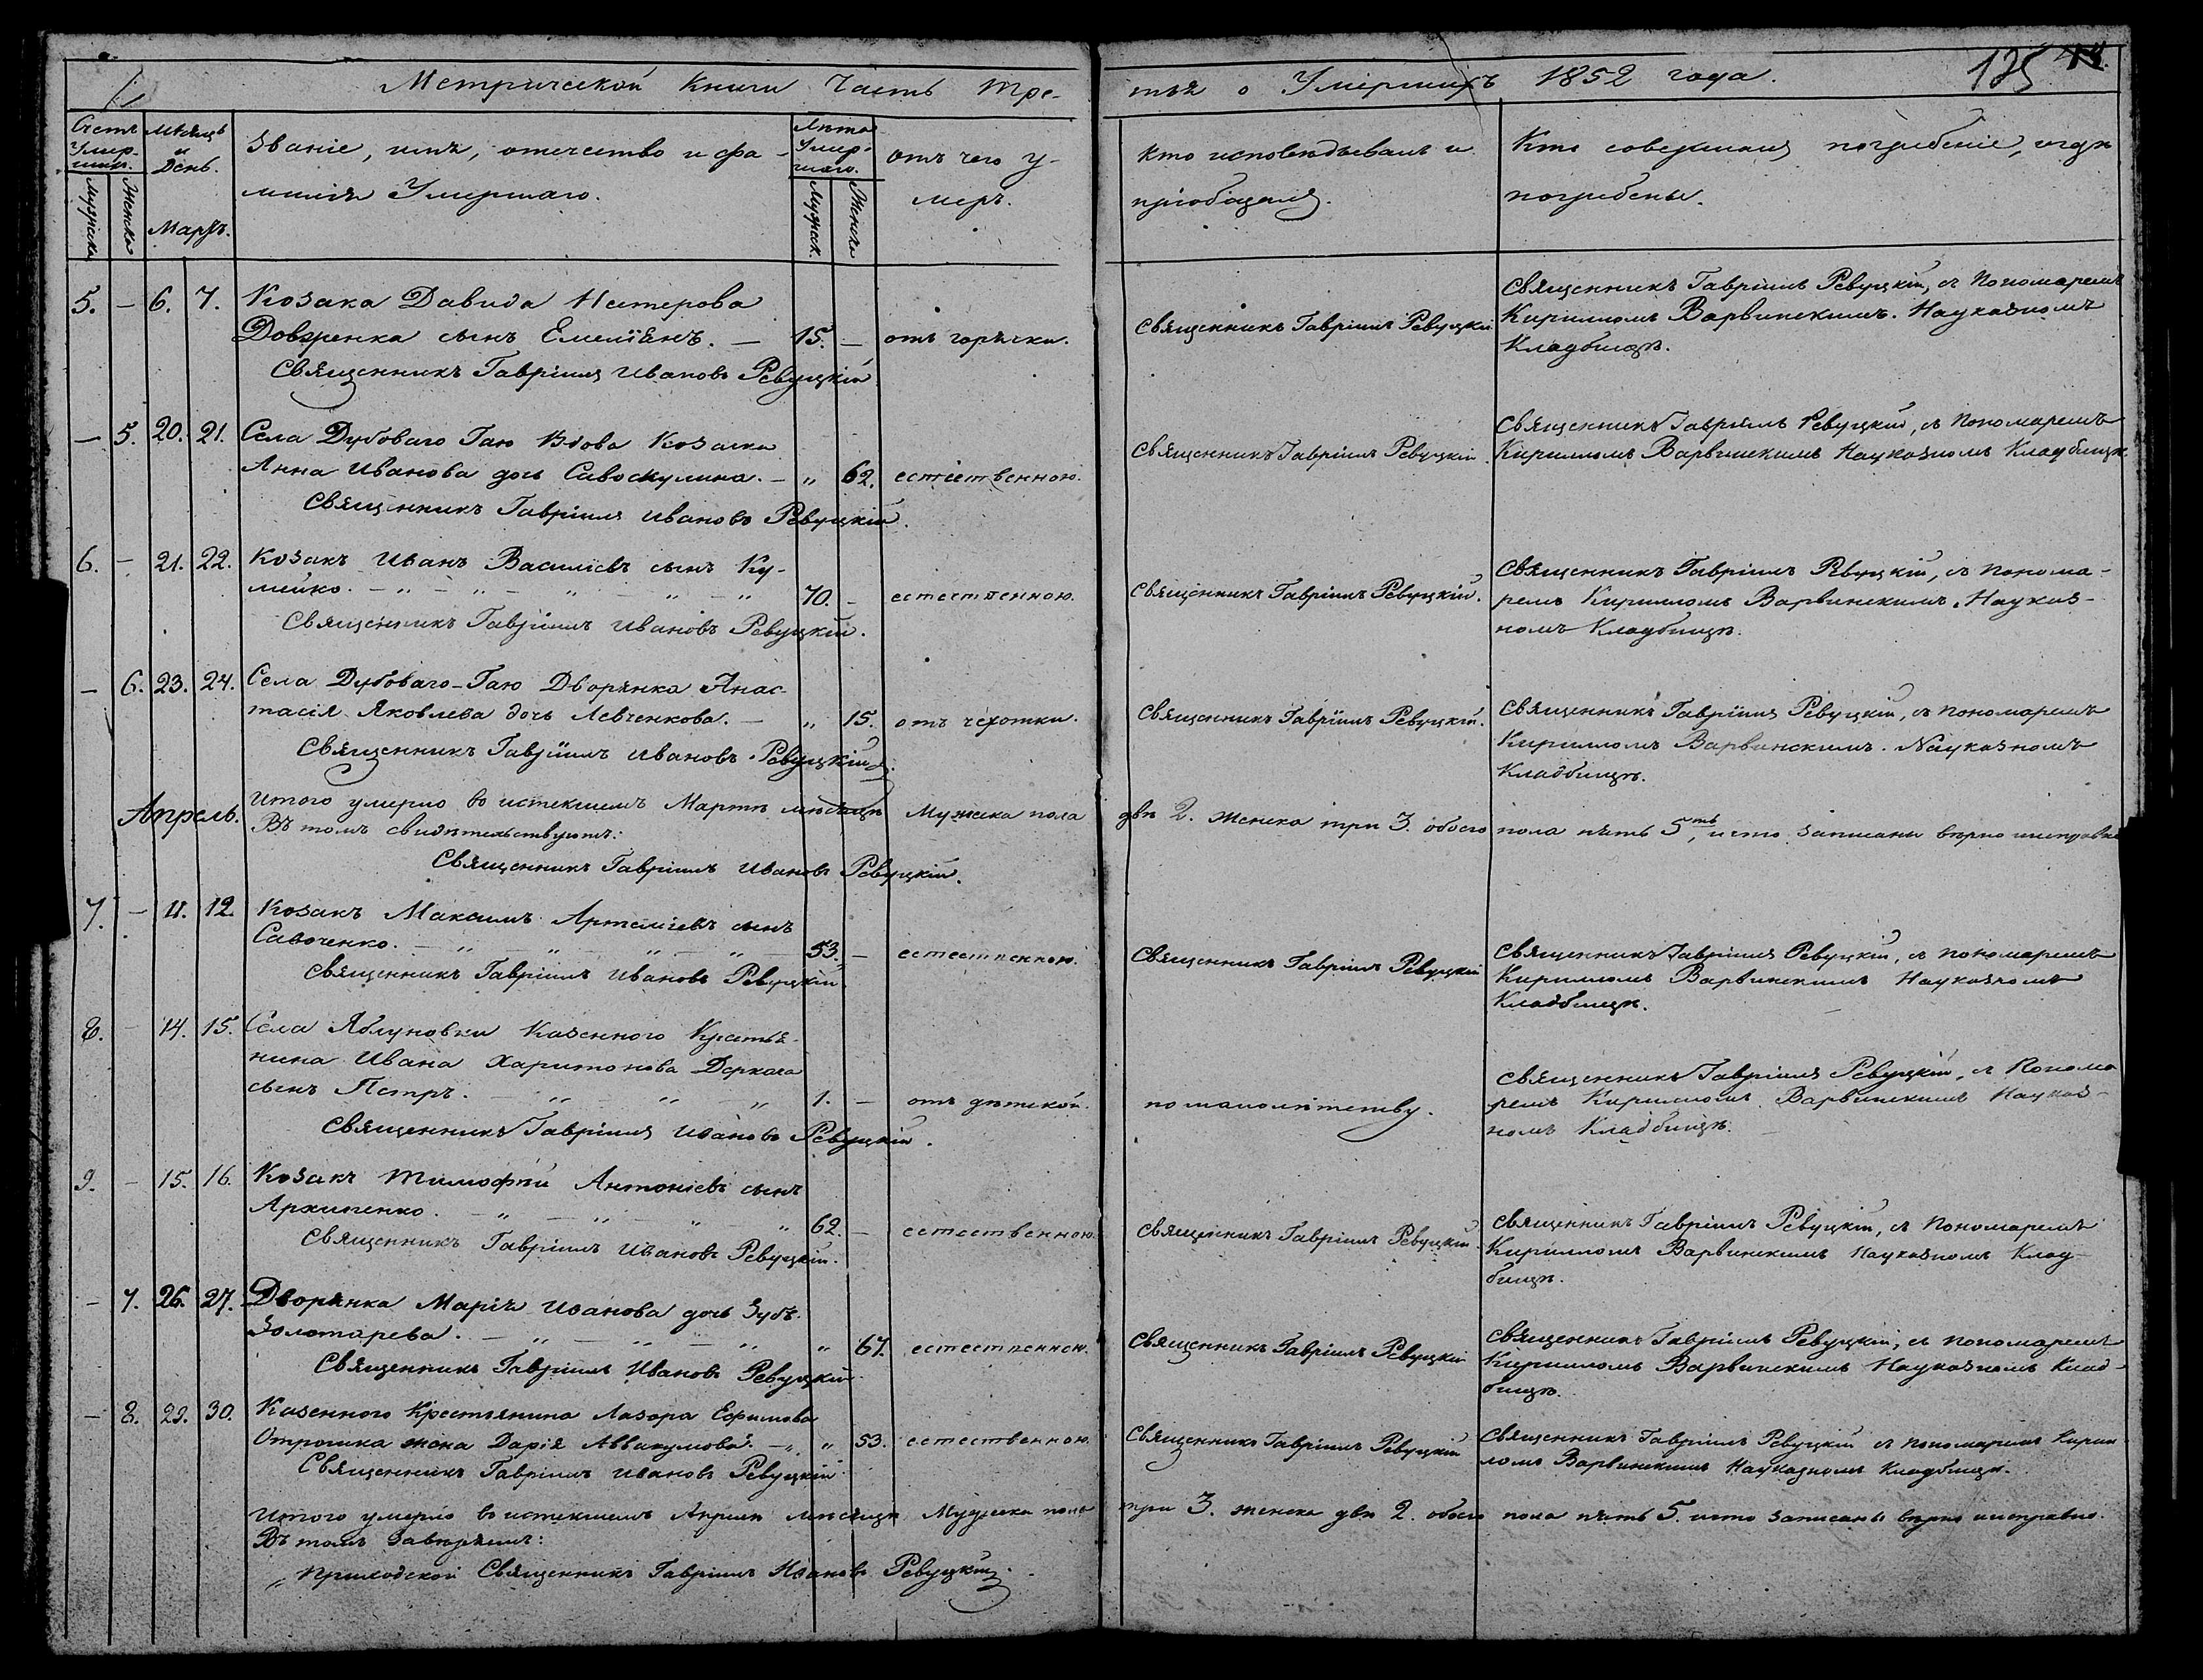 Метрической Книги Часть Тре-
тья о Умершихъ 1852 года.
135 44.
Счетъ Умер-шихъ.
Мѣсяцъ и День.
Званіе, имя, отечество и фа-
милія Умершаго.
Лѣта Умер-шаго.
отъ чего у-
меръ.
Кто исповѣдывалъ и
пріобщалъ.
Кто совершалъ погребеніе, и гдѣ
погребены.
Мужеска
Женска
Мартъ.
Мужеск.
Женска
5. – 6. 7. Козака Давида Нестерова
Довгенка сынъ Емеліянъ. – 15. – отъ горячки.
Священникъ Гавріилъ Ивановъ Ревуцкій
Священникъ Гавріилъ Ревуцкій
Священникъ Гавріилъ Ревуцкій, съ Пономаремъ
Кирилломъ Варвинскимъ. На указномъ
Кладбищѣ.
– 5. 20. 21. Села Дубоваго Гаю Вдова Козачка
Анна Иванова дочь Савоскулина. – „ 62. естественною.
Священникъ Гавріилъ Ивановъ Ревуцкій.
Священникъ Гавріилъ Ревуцкій.
Священникъ Гавріилъ Ревуцкій, съ Пономаремъ
Кирилломъ Варвинскимъ На указномъ Кладбищѣ.
6. – 21. 22. Козакъ Иванъ Василіевъ сынъ Ку-
лейко. – „ – „ – „ – „ – „ 70. – естественною.
Священникъ Гавріилъ Ивановъ Ревуцкій.
Священникъ Гавріилъ Ревуцкій.
Священникъ Гавріилъ Ревуцкій, съ Понома-
ремъ Кирилломъ Варвинскимъ. На указ-
номъ Кладбищѣ.
– 6. 23. 24. Села Дубоваго-Гаю Дворянка Анас-
тасія Яковлева дочь Левченкова. – „ 15. отъ чехотки.
Священникъ Гавріилъ Ивановъ Ревуцкій.
Священникъ Гавріилъ Ревуцкій.
Священникъ Гавріилъ Ревуцкій, съ Пономаремъ
Кирилломъ Варвинскимъ. На указномъ
Кладбищѣ.
Апрель.
Итого умерло во истекшемъ Мартѣ мѣсяцѣ Мужеска пола двѣ 2. Женска три 3. обоего пола пять 5ть, и что записаны вѣрно и исправно
Въ томъ свидѣтельствуютъ:
Священникъ Гавріилъ Ивановъ Ревуцкій.
7. – 11. 12. Козакъ Максимъ Артеміевъ сынъ
Савоченко. – „ – „ – „ – „ – 53. – естественною.
Священникъ Гавріилъ Ивановъ Ревуцкій.
Священникъ Гавріилъ Ревуцкій
Священникъ Гавріилъ Ревуцкій, съ Пономаремъ
Кирилломъ Варвинскимъ На указномъ
Кладбищѣ.
8. – 14. 15. Села Яблуновки Казенного Крестья-
нина Ивана Харитонова Деркача
сынъ Петръ. – „ – „ – „ 1. – отъ дѣтской.
Священникъ Гавріилъ Ивановъ Ревуцкій.
по малолѣтству.
Священникъ Гавріилъ Ревуцкій, съ Понома
ремъ Кирилломъ Варвинскимъ На указ-
номъ Кладбищѣ.
9. – 15. 16. Козакъ Тимофѣй Антоніевъ сынъ
Архипенко. – „ – „ – „ – „ 62. – естественною.
Священникъ Гавріилъ Ивановъ Ревуцкій.
Священникъ Гавріилъ Ревуцкій.
Священникъ Гавріилъ Ревуцкій, съ Пономаремъ
Кирилломъ Варвинскимъ На указномъ Клад-
бищѣ.
– 7. 26. 27. Дворянка Марія Иванова дочь Зубъ-
Золотарева. – „ – „ – „ „ 67. естественною.
Священникъ Гавріилъ Ивановъ Ревуцкій.
Священникъ Гавріилъ Ревуцкій
Священникъ Гавріилъ Ревуцкій, съ Пономаремъ
Кирилломъ Варвинскимъ На указномъ Клад-
бищѣ.
– 8. 29. 30. Казенного Крестянина Лазора Ефимова
Отрошка жена Дарія Аввакумова. – „ „ 53. естественною.
Священникъ Гавріилъ Ивановъ Ревуцкій.
Священникъ Гавріилъ Ревуцкій
Священникъ Гавріилъ Ревуцкій съ Пономаремъ Кирил-
ломъ Варвинскимъ На указномъ Кладбищѣ.
Итого умерло въ истекшемъ Априлѣ мѣсяцѣ Мужеска пола три 3. женска двѣ 2. обоего пола пять 5. и что записаны вѣрно и исправно.
Въ томъ завѣряемъ:
„ Приходской Священникъ Гавріилъ Ивановъ Ревуцкій.